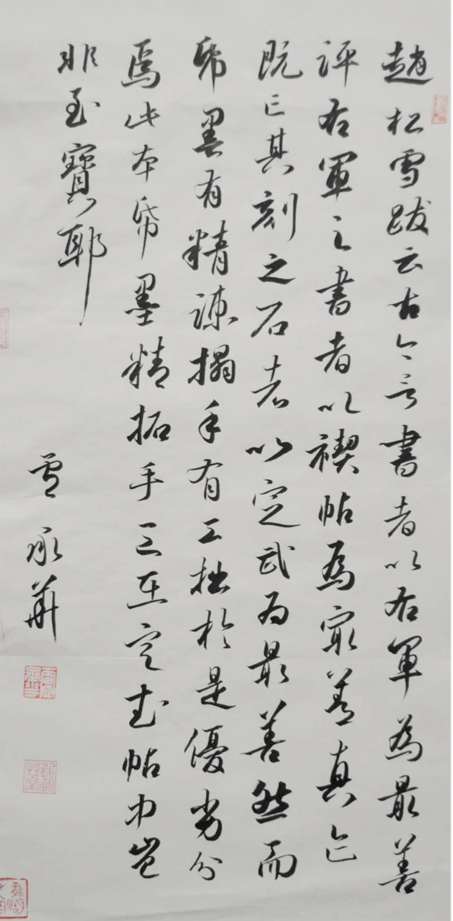 趙松雪跋云古今言書者以右軍為最善
評右軍之書者以禊帖為最善真迹
既亡其刻之石者以定武為最善然而
紙墨有精疎搨手有工拙於是優劣分
焉此本紙墨精拓手工在定武帖中豈
非至寶耶
承華